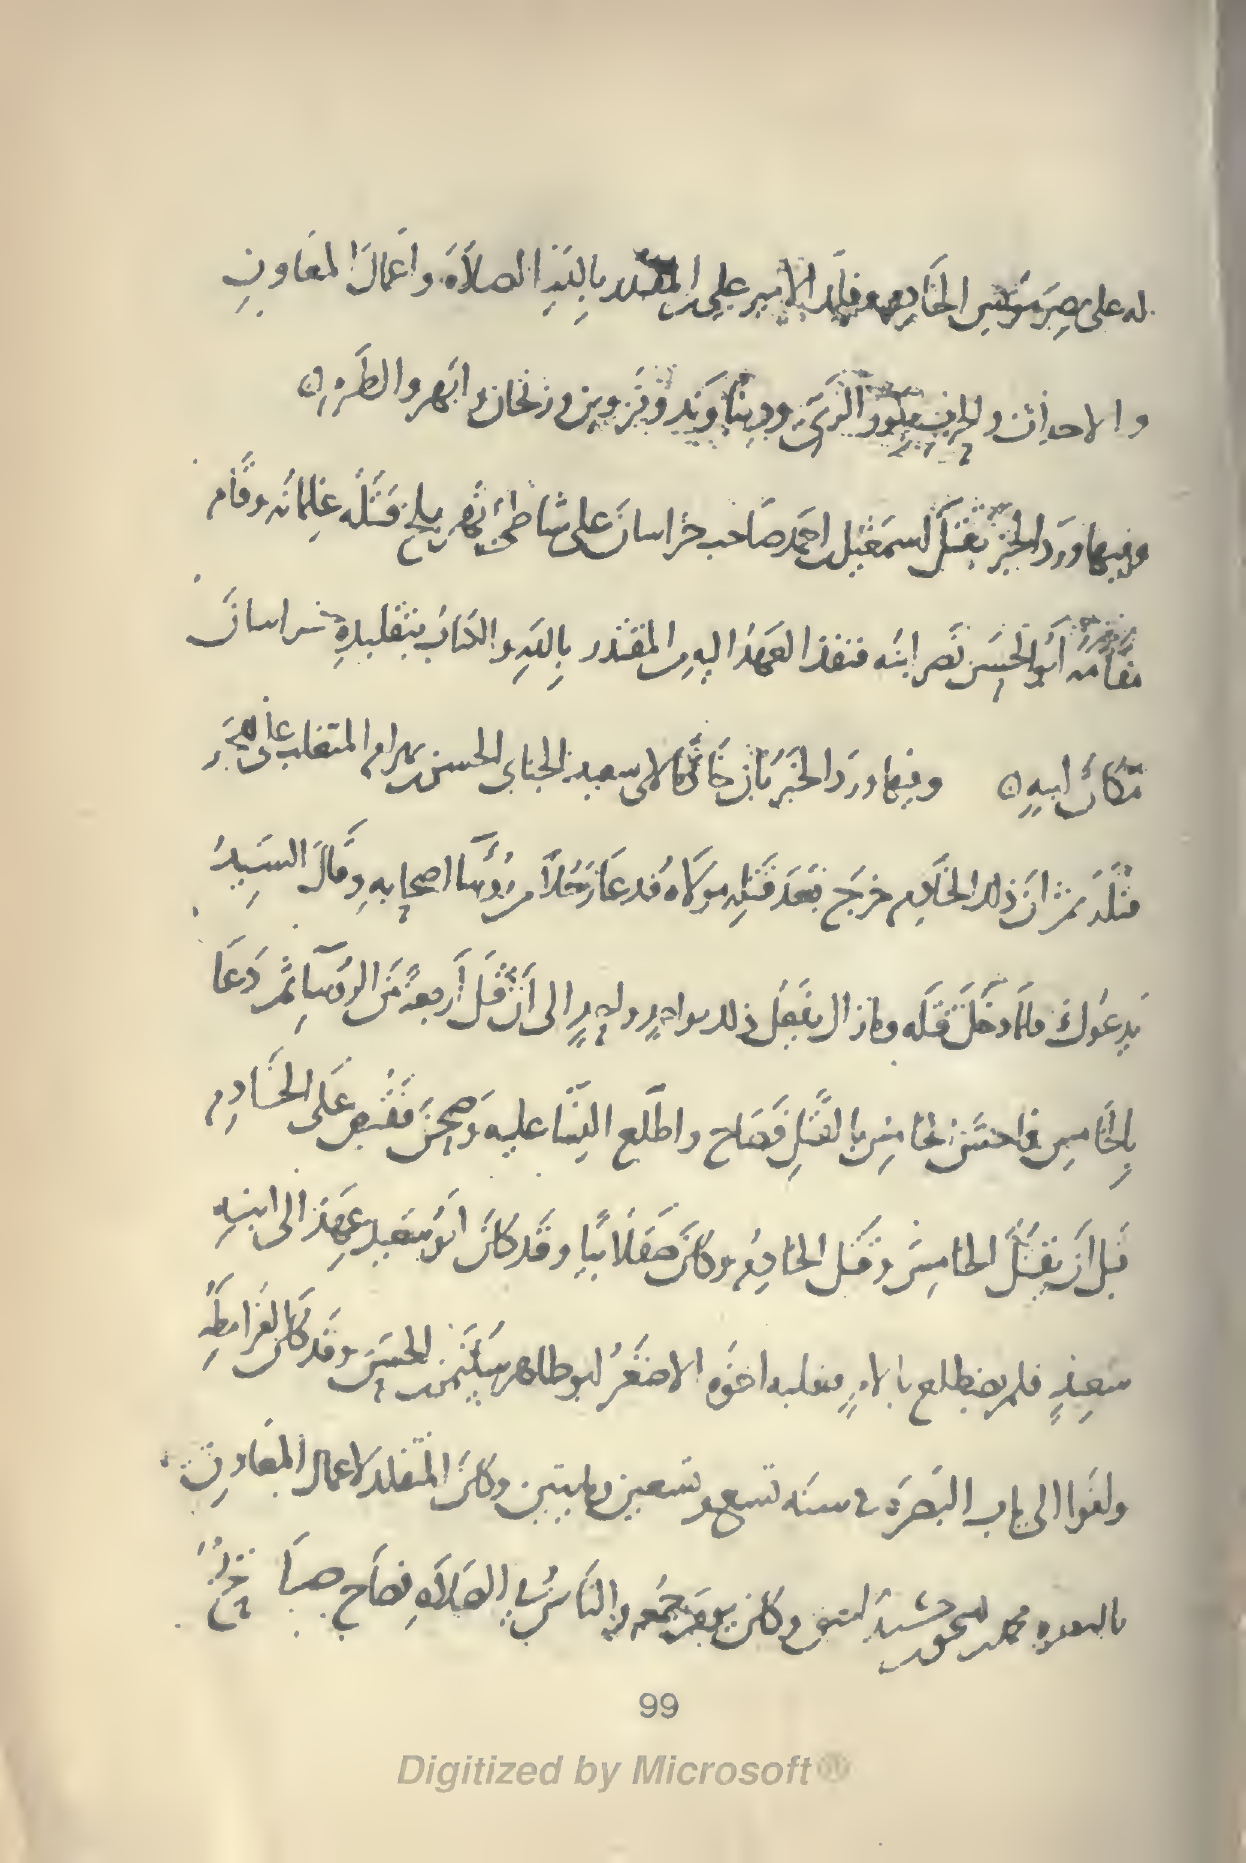 له على مصر مونس الخادم وقلد الامير على بن المقتدر بالله الصلاة واعمال المعاون
والاحداث والخراج بكور الرى ودنباوند وقزوين وزنجان وابهر والطرم
وفيها ورد الخبر بقتل اسمعيل احمد صاحب خراسان على شاطئ نهر بلخ قتله غلمانه وقام
مقامه ابو الحسن نصر ابنه فنفذ العهد اليه من المقتدر بالله والكتاب بتقليده خراسان
مكان ابيه وفيها ورد الخبر بان خادما لابى سعيد الجنابى الحسن بن بهرام المتغلب على هجر
قتله ثم ان ذلك الخادم خرج بعد قتله مولاه فدعا رجلا من رؤسا اصحابه وقال السيد
يدعوك فلما دخل قتله وما زال يفعل ذلك بواحد واحد الى ان قتل أربعة من الرؤسآ ثم دعا
بالخامس فاحس الخامس بالقتل فصاح واطلع النسا عليه وصحن فقبض على الخادم
قبل ان يقتل الخامس وقتل الخادم وكان صقلابيا وقد كان ابو سعيد عهد الى ابنه
سعيد فلم يضطلع بالامر فغلبه اخوه الاصغر ابو طاهر سليمن بن الحسن وقد كان القرامطة
وافوا الى باب البصرة فى سنه تسع وتسعين ومايتين وكان المتقلد لاعمال المعاون
بالبصره محمد بن اسحق بن وكان يوم جمعه والناس فى الصلاة فصاح